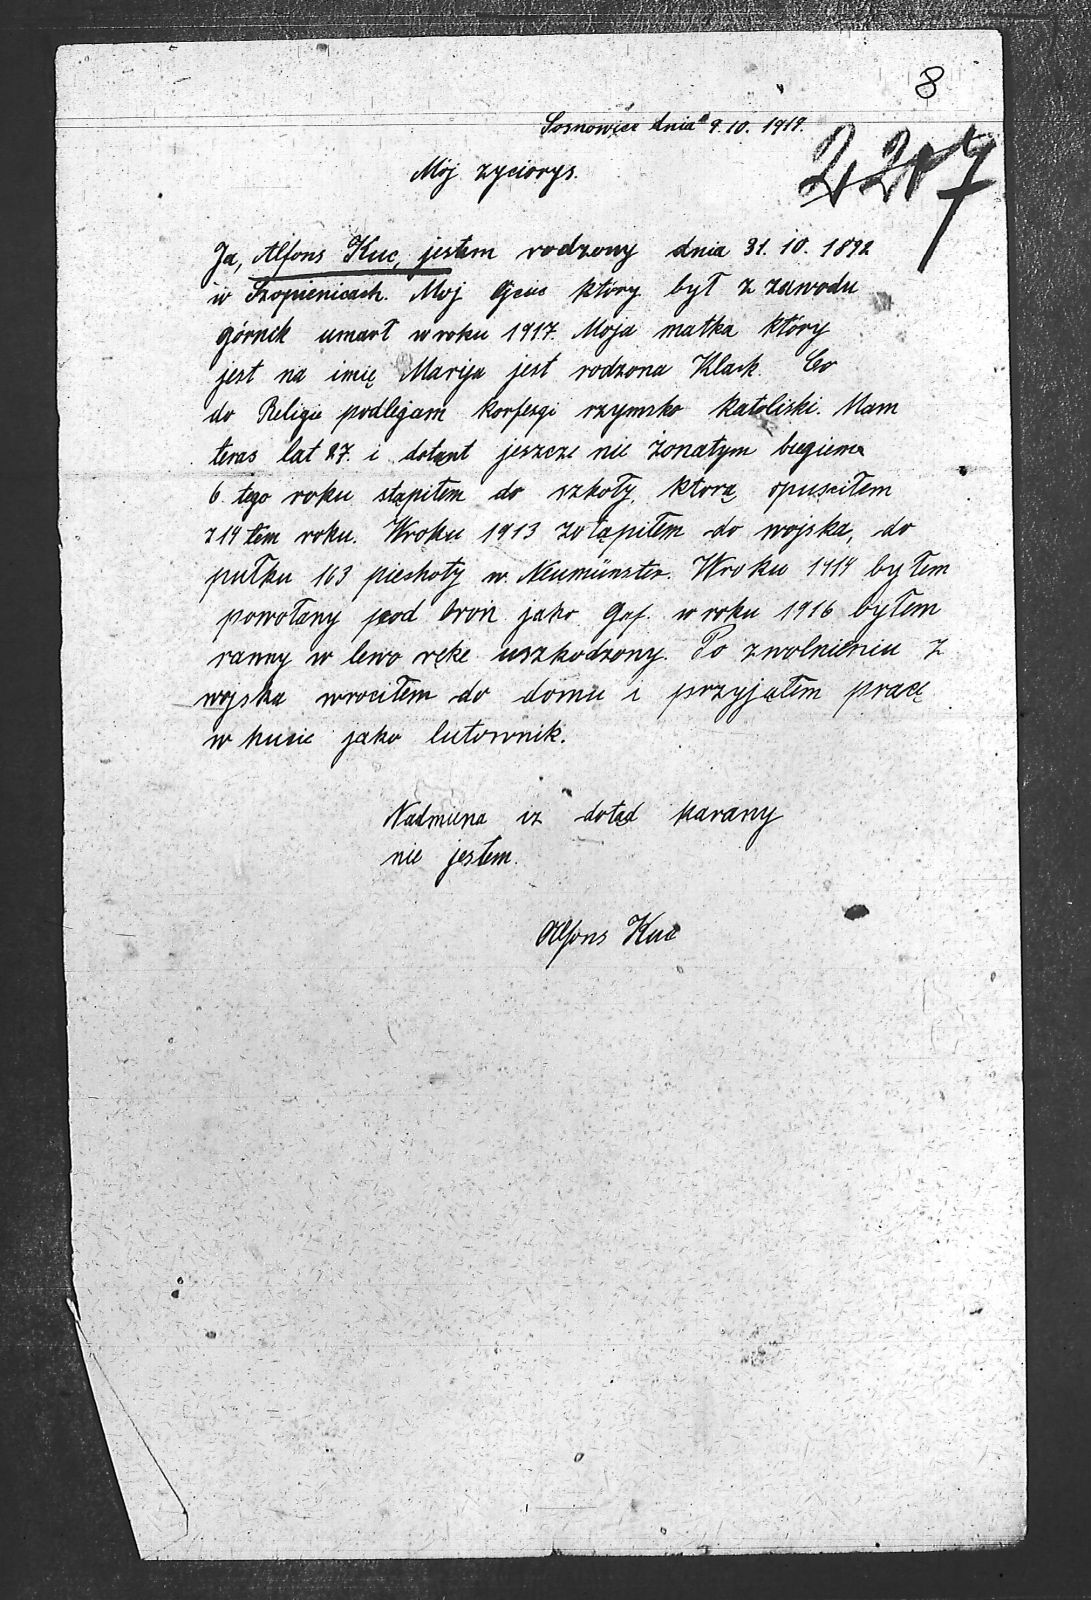 8
Sosnowice dnia 9.10. 1919.
2207
Moj zyciorys.
Ja, Alfons Kuc, jestem rodzony dnia 31. 10. 1892
w Szopienicach. Moj Ojciec który był z zawodu
górnik umarł w roku 1917. Moja matka który
jest na imię Marija jest rodzona Klack. Co
do Religie podlegam rzymsko katoliski. Mam
teras lat 27. i jeszcze nie żonatym biegiem
6 tego roku stąpiłem do szkoły, ktorą opusciłem
z 14 tem roku. W roku 1913 do wojska, do
pułku 163 piechoty w. Neumünster. W roku 1914 byłem
powołany pod broń jako Gef. w roku 1916 byłem
ranny w lewo ręke uszkodzony. Po zwolnieniu z
wojska wrociłem do domu i przyjąłem pracę
w hucie jako lutownik.
Nadmiena iz dotąd karany
nie jestem.
Alfons Kuc